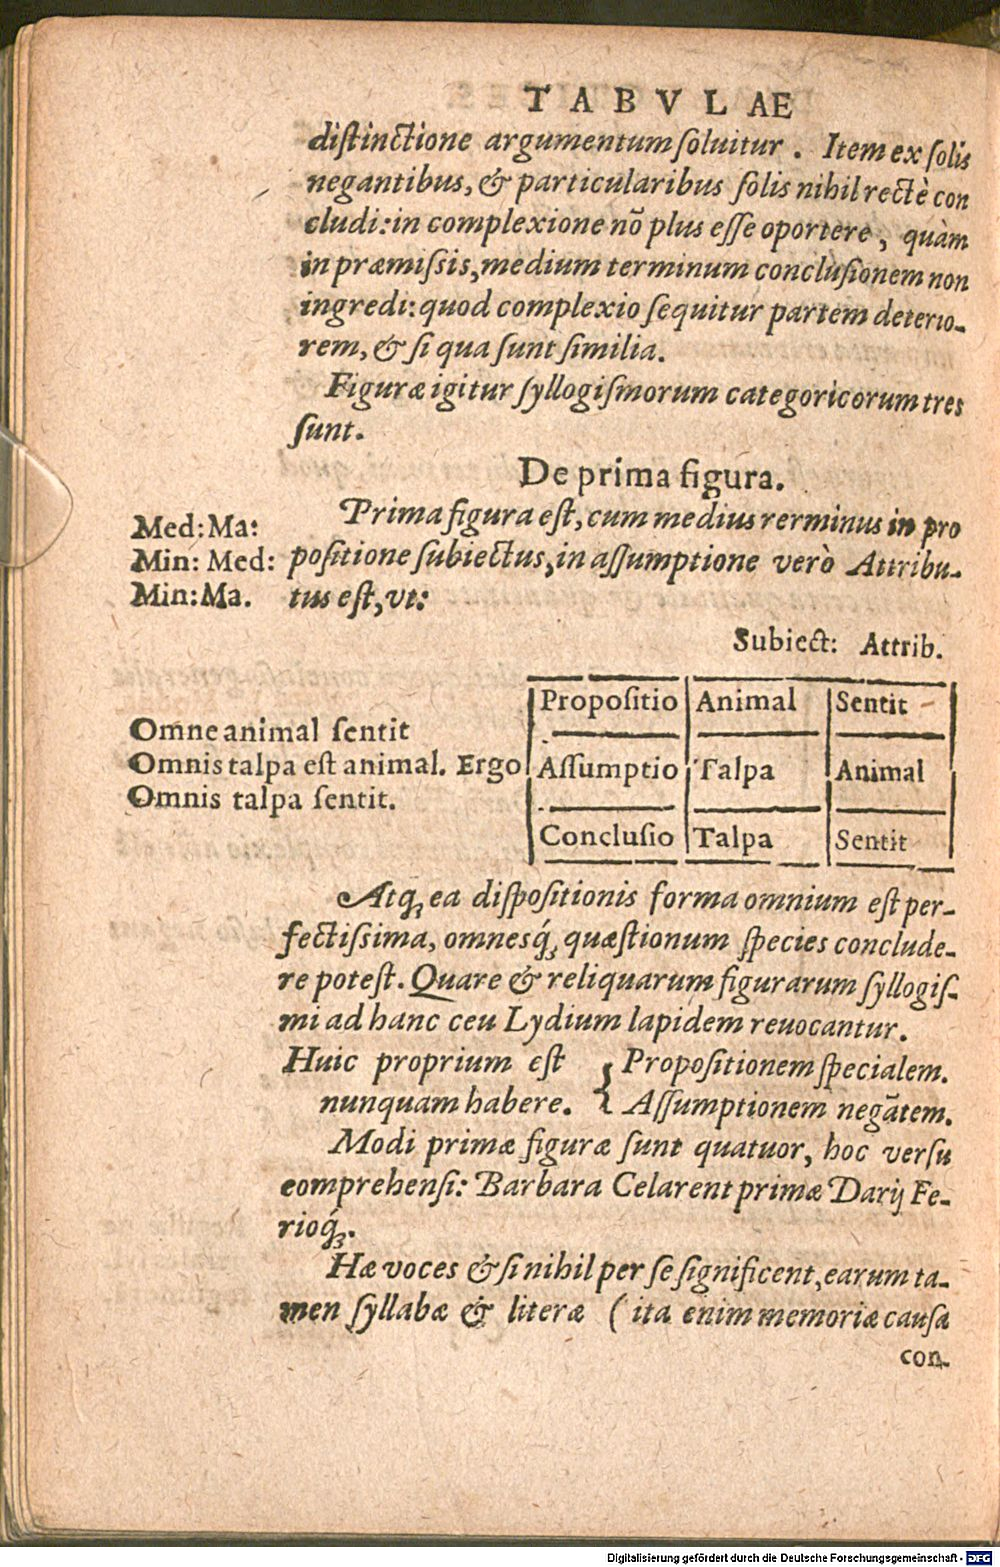 TABVLAE
distinctione argumentum soluitur. Item ex solis
negantibus, & particularibus solis nihil rectè con
cludi: in complexione nõ plus esse oportere, quàm
in præmissis, medium terminum conclusionem non
ingredi: quod complexio sequitur partem deterio-
rem, & si qua sunt similia.
Figuræ igitur syllogismorum categoricorum tres
sunt.
De prima figura.
Med: Ma:
Min: Med:
Min: Ma.
Prima figura est, cum medius rerminus in pro
positione subiectus, in assumptione verò Attribu-
tus est, vt:
Subiect: Attrib.
Omne animal sentit
Omnis talpa est animal. Ergo
Omnis talpa sentit.
Propositio Animal Sentit
Assumptio Talpa Animal
Conclusio Talpa Sentit
Atq; ea dispositionis forma omnium est per-
fectissima, omnesq́; quæstionum species conclude-
re potest. Quare & reliquarum figurarum syllogis-
mi ad hanc ceu Lydium lapidem reuocantur.
Huic proprium est { Propositionem specialem.
nunquam habere. { Assumptionem negãtem.
Modi primæ figuræ sunt quatuor, hoc versu
comprehensi: Barbara Celarent primæ Darij Fe-
rioq́;.
Hæ voces & si nihil per se significent, earum ta-
men syllabæ & literæ (ita enim memoriæ causa
con-
Digitalisierung gefördert durch die Deutsche Forschungsgemeinschaft - DFG